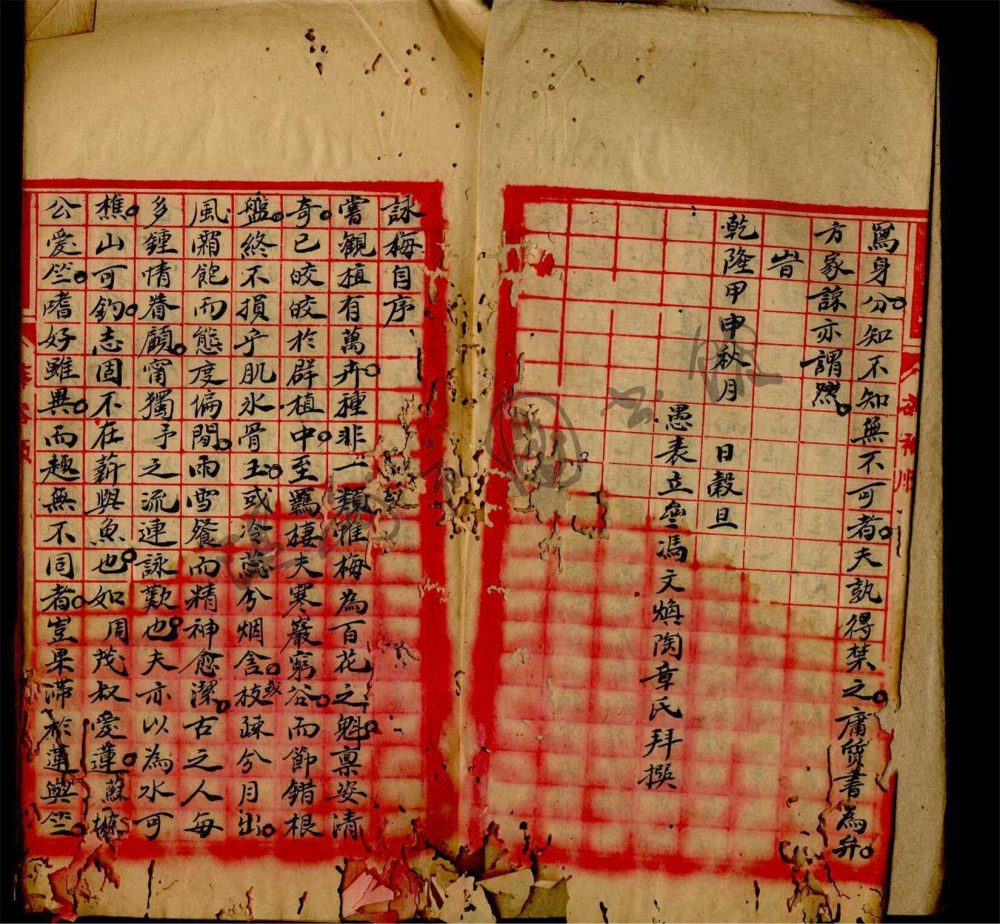 為身分知不知無不可者夫孰得禁之庸質書為弁
方家諒亦謂然
旹
乾隆甲申秋月　日穀旦
愚表立壑馮文煥陶章氏拜撰
詠梅自序
嘗觀植有萬卉種非一類惟梅為百花之魁稟姿清
奇已皎皎於群植中至為棲夫寒巖窮谷而節錯根
盤終不損乎肌氷骨玉或冷蕊兮烟含或枝疎兮月出
風霜飽而態度偏閒雨雪餐而精神愈潔古之人每
多鍾情眷顧甯獨予之流連詠歎也夫亦以為水可
樵山可釣志固不在薪與魚也如周茂叔愛蓮蘇
公愛竺嗜好雖異而趣無不同者豈果滯於蓮與竺